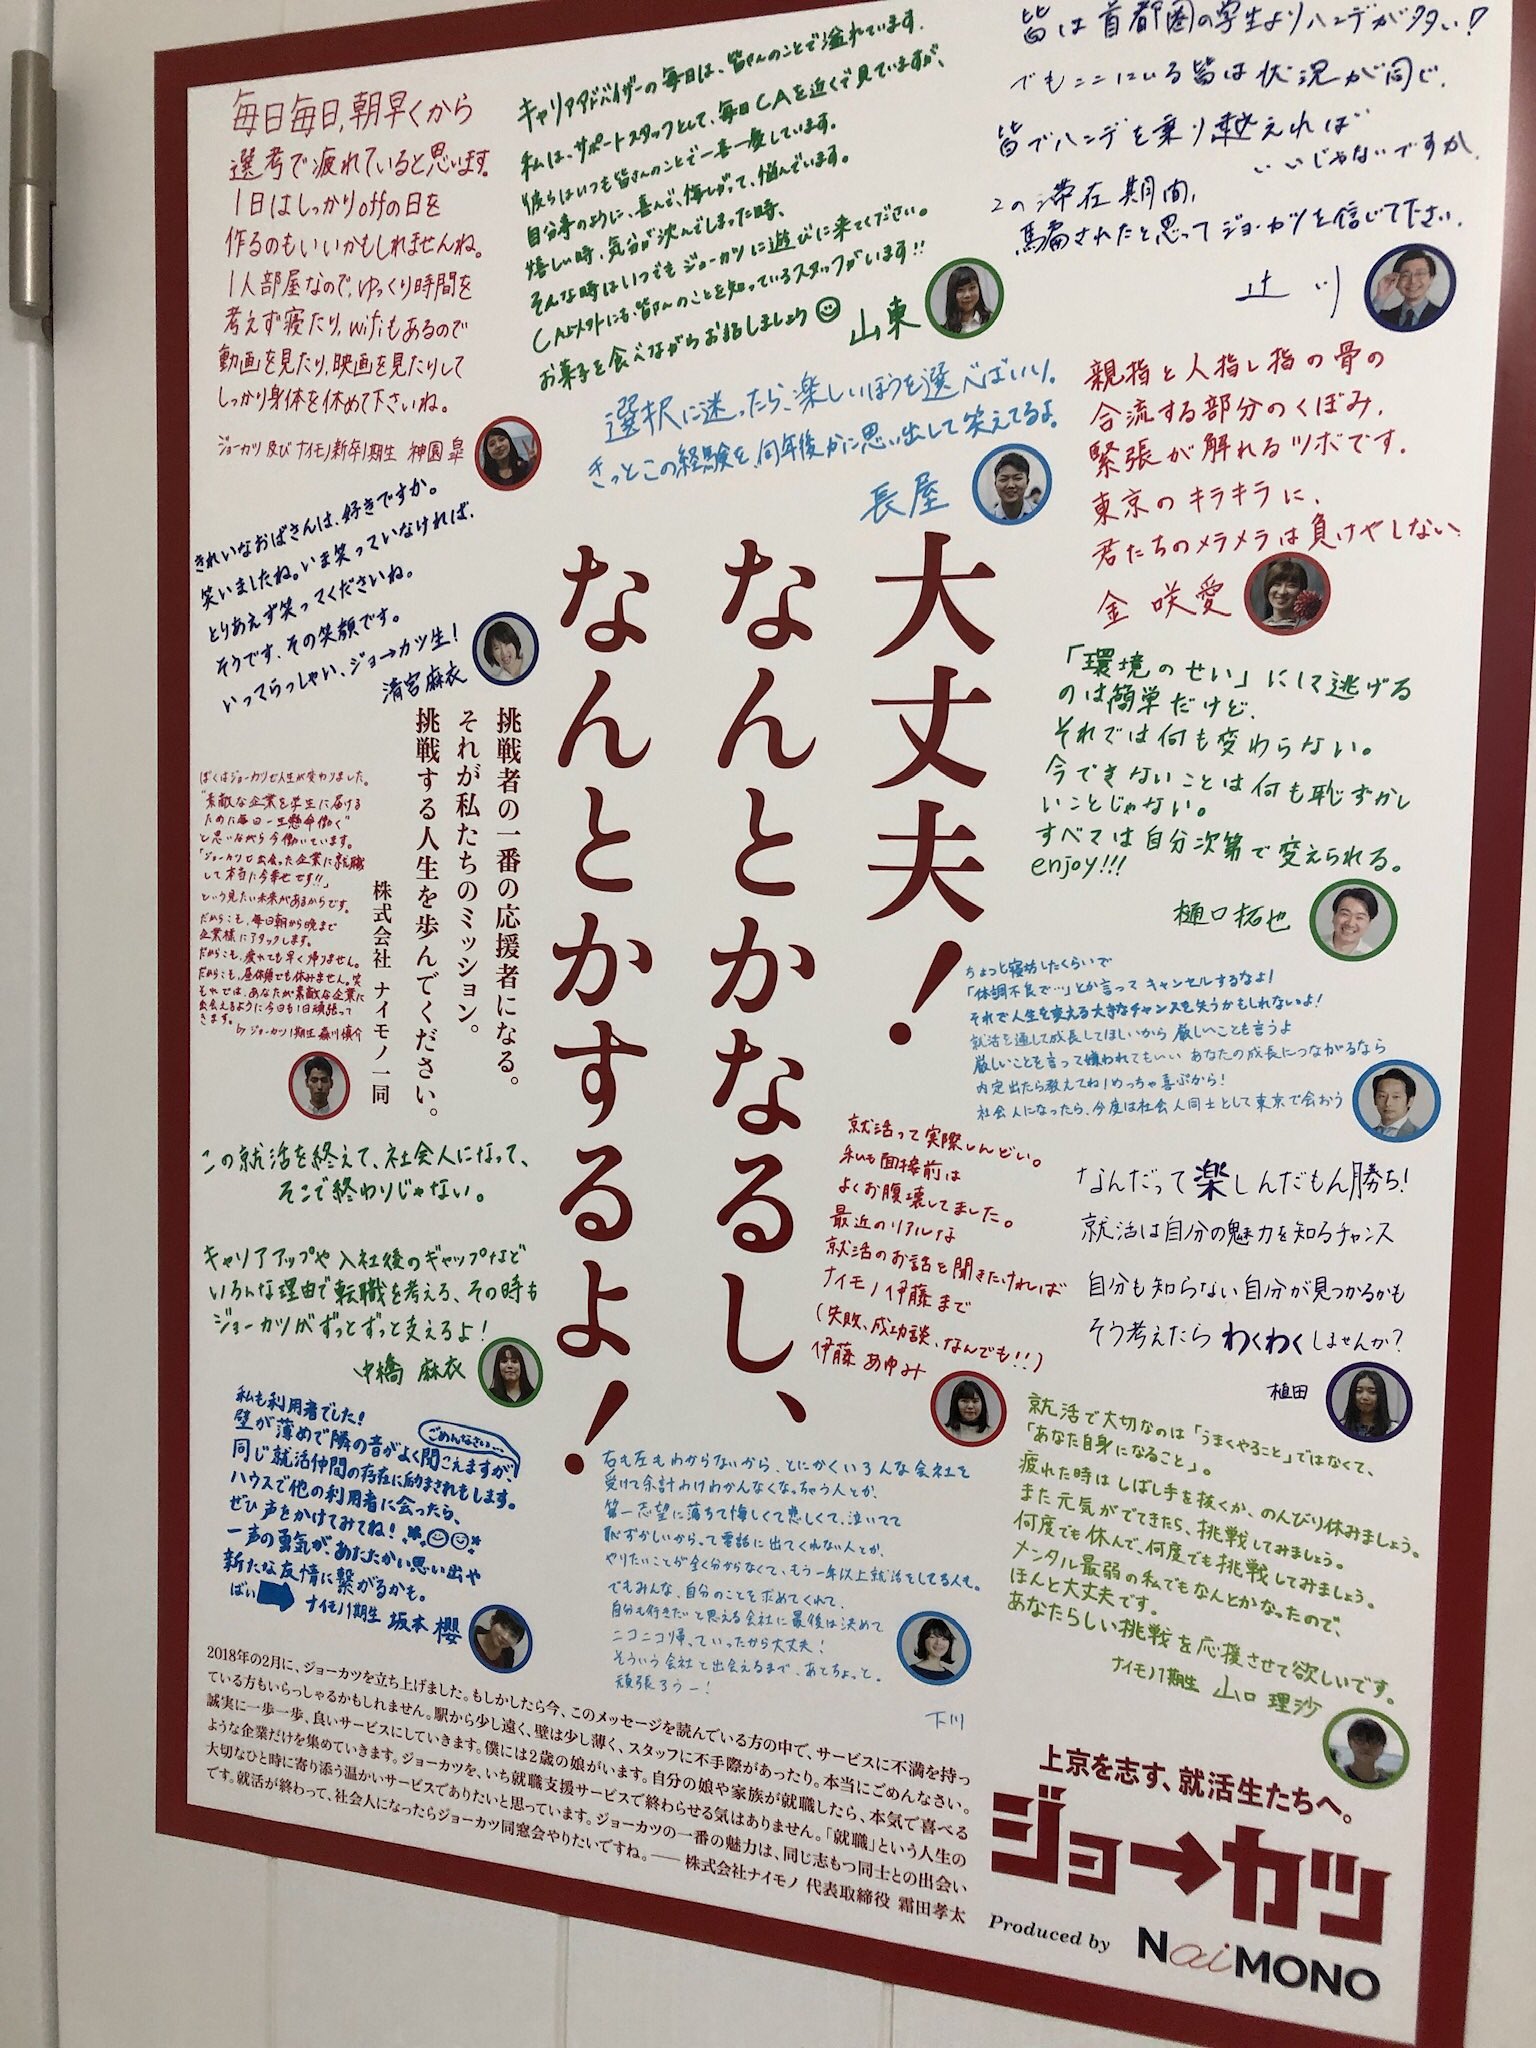 毎日毎日、朝早くから
選考で疲れていると思います。
1日はしっかりoffの日を
作るのもいいかもしれませんね。
1人部屋なので、ゆっくり時間を
考えず寝たり、wifiもあるので
動画を見たり、映画を見たりして
しっかり身体を休めて下さいね。
ジョーカツ及びナイモノ新卒1期生 神園 皐
キャリアアドバイザーの毎日は、皆さんのことで溢れています。
私は、サポートスタッフとして、毎日CAを近くで見ていますが、
彼らはいつも皆さんのことで一喜一憂しています。
自分事のように、喜んで、悔しがって、悩んでいます。
嬉しい時、気分が沈んでしまった時、
そんな時はいつでもジョーカツに遊びに来てください。
CA以外にも、皆さんのことを知っているスタッフがいます!!
お菓子を食べながらお話しましょう
山東
皆は首都圏の学生よりハンデが多い!
でもここにいる皆は状況が同じ。
皆でハンデを乗り越えれば
いいじゃないですか。
この滞在期間、
騙されたと思ってジョーカツを信じて下さい。
辻川
選択に迷ったら、楽しいほうを選べばいい。
きっとこの経験を、何年後かに思い出して笑えてるよ。
長屋
親指と人指し指の骨の
合流する部分のくぼみ、
緊張が解れるツボです。
東京のキラキラに、
君たちのメラメラは負けやしない
金 咲愛
きれいなおばさんは、好きですか。
笑いましたね。いま笑っていなければ、
とりあえず笑ってくださいね。
そうです、その笑顔です。
いってらっしゃい、ジョーカツ生!
清宮麻衣
大丈夫!
なんとかなるし、
なんとかするよ!
挑戦者の一番の応援者になる。
それが私たちのミッション。
挑戦する人生を歩んでください。
株式会社 ナイモノ一同
「環境のせい」にして逃げる
のは簡単だけど、
それでは何も変わらない。
今できないことは何も恥ずかし
いことじゃない。
すべては自分次第で変えられる。
enjoy!!!
樋口拓也
ぼくはジョーカツで人生が変わりました。
"素敵な企業を学生に届ける
ために毎日一生懸命働く"
と思いながら今働いています。
「ジョーカツで出会った企業に就職
して本当に今幸せです!!」
という見たい未来があるからです。
だからこそ、毎日朝から晩まで
企業様にアタックします。
だからこそ、疲れても早く帰りません。
だからこそ、昼休憩でも休みません。笑
それでは、あなたが素敵な企業に
出会えるように今日も1日頑張って
きます。
by ジョーカツ1期生 森川慎介
ちょっと寝坊したくらいで
「体調不良で…」とか言ってキャンセルするなよ!
それで人生を変える大きなチャンスを失うかもしれないよ!
就活を通して成長してほしいから 厳しいことも言うよ
厳しいことを言って嫌われてもいい あなたの成長につながるなら
内定出たら教えてね!めっちゃ喜ぶから!
社会人になったら、今度は社会人同士として東京で会おう
就活って実際しんどい。
私も面接前は
よくお腹壊してました。
最近のリアルな
就活のお話を聞きたければ
ナイモノ伊藤まで
(失敗、成功談、なんでも!!)
伊藤 あゆみ
なんだって楽しんだもん勝ち!
就活は自分の魅力を知るチャンス
自分も知らない自分が見つかるかも
そう考えたらわくわくしませんか?
植田
この就活を終えて、社会人になって、
そこで終わりじゃない。
キャリアアップや入社後のギャップなど
いろんな理由で転職を考える、その時も
ジョーカツがずっとずっと支えるよ!
中橋 麻衣
私も利用者でした!
壁が薄めで隣の音がよく聞こえますが、
ごめんなさい…
同じ就活仲間の存在に励まされもします。
ハウスで他の利用者に会ったら、
ぜひ声をかけてみてね!
一声の勇気が、あたたかい思い出や
新たな友情に繋がるかも。
ばい ナイモノ1期生 坂本 櫻
右も左もわからないから、とにかくいろんな会社を
受けて余計わけわかんなくなっちゃう人とか、
第一志望に落ちて悔しくて悲しくて、泣いてて
恥ずかしいからって電話に出てくれない人とか、
やりたいことが全く分からなくて、もう一年以上就活をしてる人も。
でもみんな、自分のことを求めてくれて、
自分も行きたいと思える会社に最後は決めて
ニコニコ帰っていったから大丈夫!
そういう会社と出会えるまで、あとちょっと。
頑張ろうー!
下川
就活で大切なのは「うまくやること」ではなくて、
「あなた自身になること」。
疲れた時はしばし手を抜くか、のんびり休みましょう。
また元気がでてきたら、挑戦してみましょう。
何度でも休んで、何度でも挑戦してみましょう。
メンタル最弱の私でもなんとかなったので、
ほんと大丈夫です。
あなたらしい挑戦を応援させて欲しいです。
ナイモノ1期生 山口 理沙
2018年の2月に、ジョーカツを立ち上げました。もしかしたら今、このメッセージを読んでいる方の中で、サービスに不満を持っ
ている方もいらっしゃるかもしれません。駅から少し遠く、壁は少し薄く、スタッフに不手際があったり。本当にごめんなさい。
誠実に一歩一歩、良いサービスにしていきます。僕には2歳の娘がいます。自分の娘や家族が就職したら、本気で喜べる
ような企業だけを集めていきます。ジョーカツを、いち就職支援サービスで終わらせる気はありません。「就職」という人生の
大切なひと時に寄り添う温かいサービスでありたいと思っています。ジョーカツの一番の魅力は、同じ志もつ同士との出会い
です。就活が終わって、社会人になったらジョーカツ同窓会やりたいですね。── 株式会社ナイモノ 代表取締役 霜田孝太
上京を志す、就活生たちへ。
ジョーカツ
Produced by NaiMONO